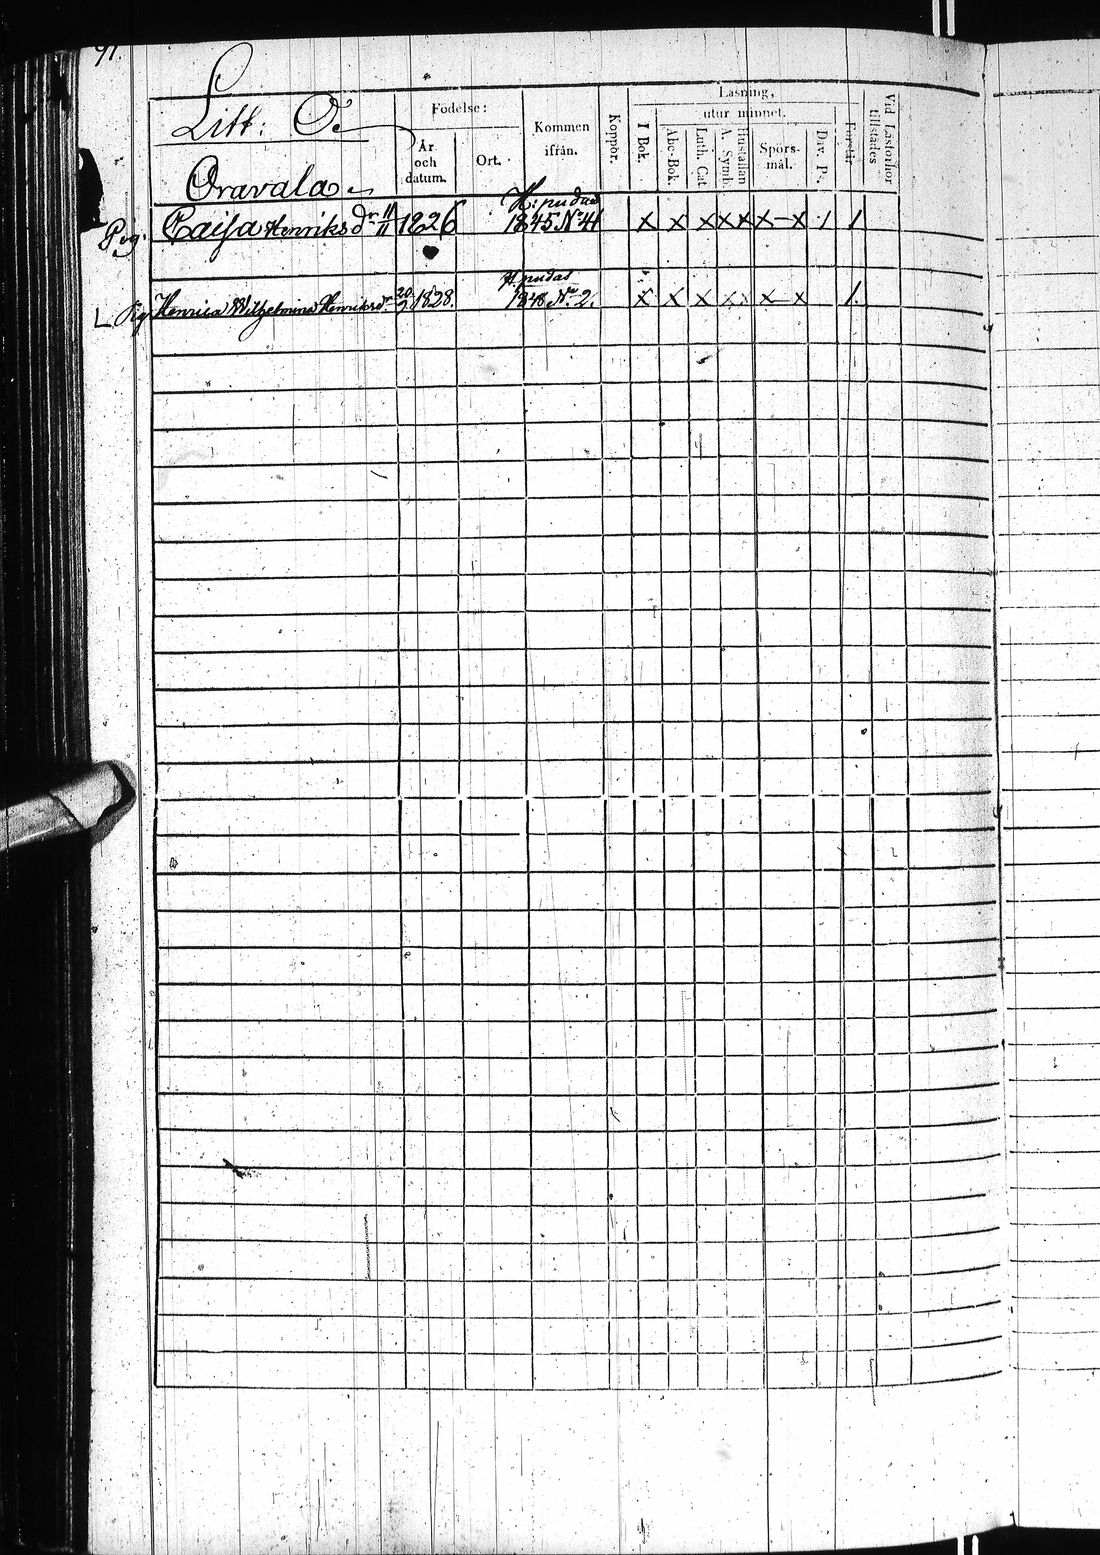 91.
Litt: O.
Oravala
Födelse:
År och datum.
Ort.
Kommen ifrån.
Koppor.
Läsning,
utur minnet.
I Bok.
Abc-Bok.
Luth. Cat.
A. Symb.
Hustaflan
Spörs-mål.
Div. P.
Förstår.
Vid Läsförhör tillstädes
H:pudas
Pig. Caisa Henriksdr 11/11 1826 1845 No 41 x x x x x x - x 1 1
H:pudas
Pig Henrica Wilhelmina Henriksdr 20/9 1828. 1848 No 2. x x x x x x - x 1.